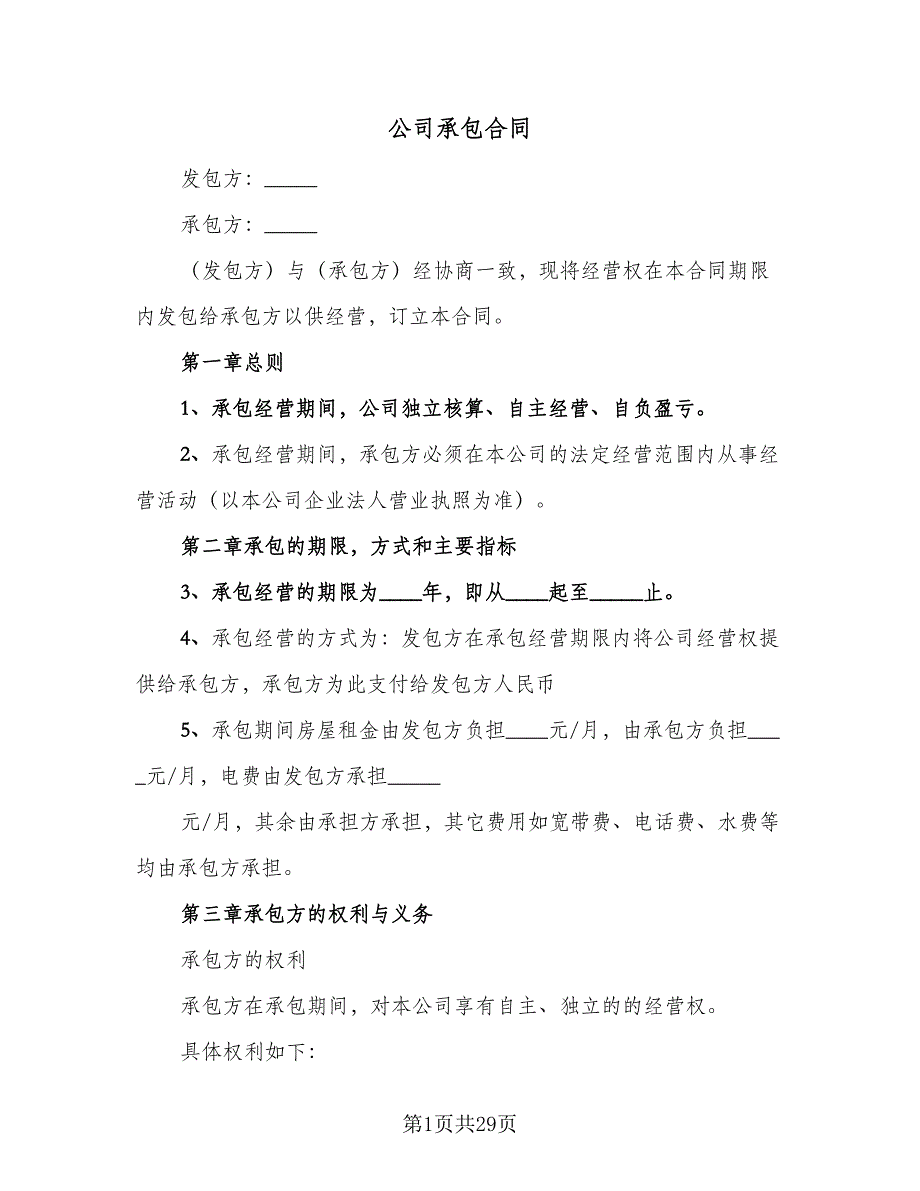 公司承包合同
发包方：_____
承包方：_____
（发包方）与（承包方）经协商一致，现将经营权在本合同期限
内发包给承包方以供经营，订立本合同。
第一章总则
1、承包经营期间，公司独立核算、自主经营、自负盈亏。
2、承包经营期间，承包方必须在本公司的法定经营范围内从事经
营活动（以本公司企业法人营业执照为准）。
第二章承包的期限，方式和主要指标
3、承包经营的期限为____年，即从____起至_____止。
4、承包经营的方式为：发包方在承包经营期限内将公司经营权提
供给承包方，承包方为此支付给发包方人民币
5、承包期间房屋租金由发包方负担____元/月，由承包方负担___
_元/月，电费由发包方承担_____
元/月，其余由承担方承担，其它费用如宽带费、电话费、水费等
均由承包方承担。
第三章承包方的权利与义务
承包方的权利
承包方在承包期间，对本公司享有自主、独立的的经营权。
具体权利如下：
第1页共29页